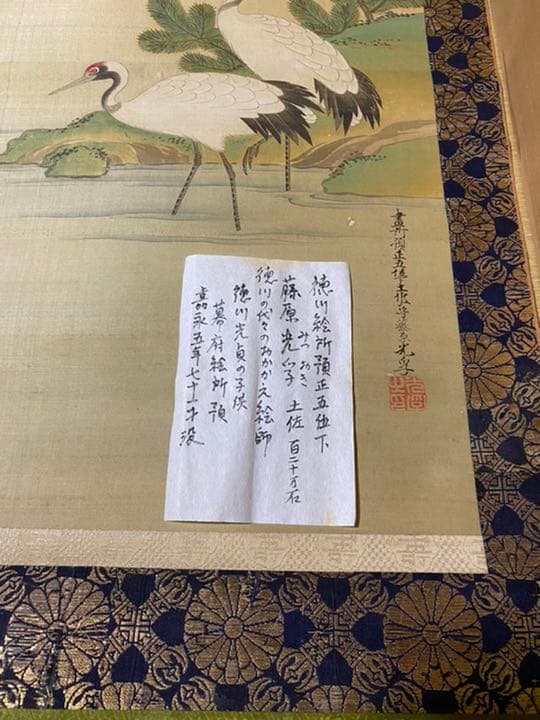 畫所預正五位下土佐守藤原光孚
徳川絵所預正五位下
みつおき
藤原光孚 土佐 百二十万石
徳川の代々のおかかえ絵師
徳川光貞の子供
幕府絵所預
嘉永五年七十一才没